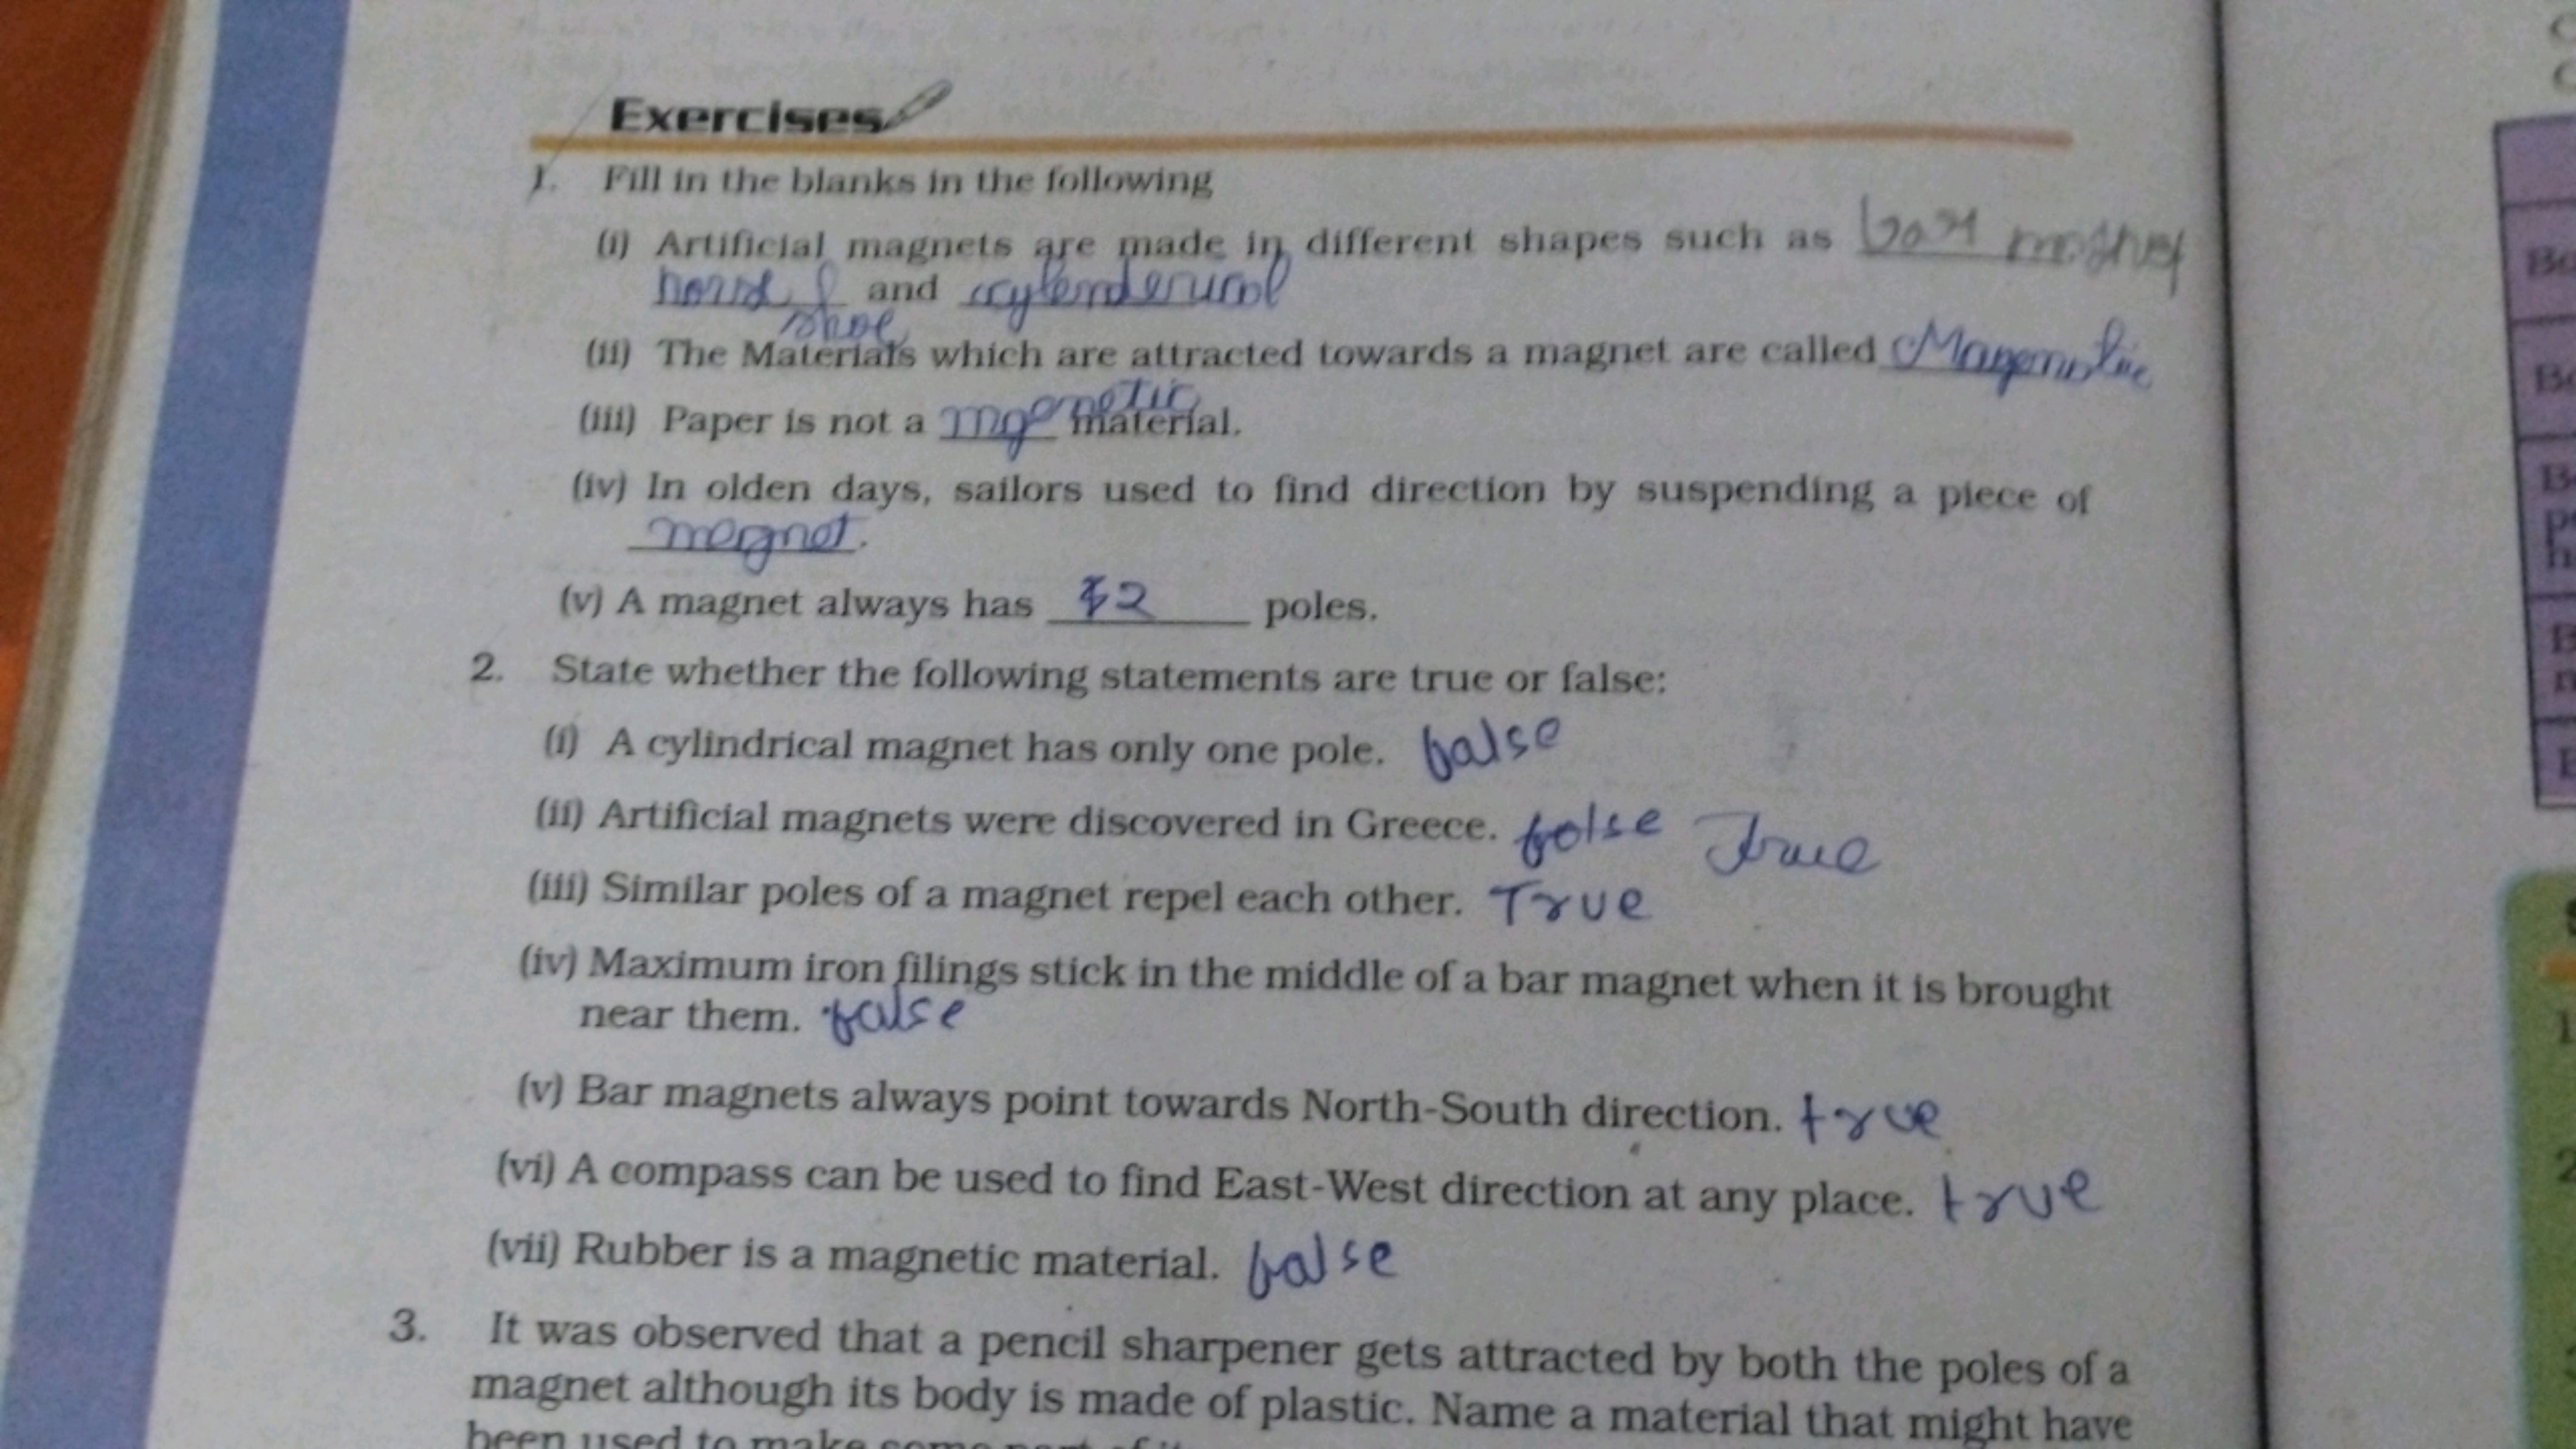 Exercises
1. Fill in the blanks in the following
(i) Artificial magnets are made in different shapes such as bar magnet
horse and cylenderical
shoe
(ii) The Materials which are attracted towards a magnet are called
(iii) Paper is not a mgenetic material.
(iv) In olden days, sailors used to find direction by suspending a piece of
magnet.
(v) A magnet always has 2 poles.
2. State whether the following statements are true or false:
(i) A cylindrical magnet has only one pole. false
(ii) Artificial magnets were discovered in Greece. false True
(iii) Similar poles of a magnet repel each other. True
(iv) Maximum iron filings stick in the middle of a bar magnet when it is brought
near them. false
(v) Bar magnets always point towards North-South direction. true
(vi) A compass can be used to find East-West direction at any place. true
(vii) Rubber is a magnetic material. false
3. It was observed that a pencil sharpener gets attracted by both the poles of a
magnet although its body is made of plastic. Name a material that might have
been used to make some part of it